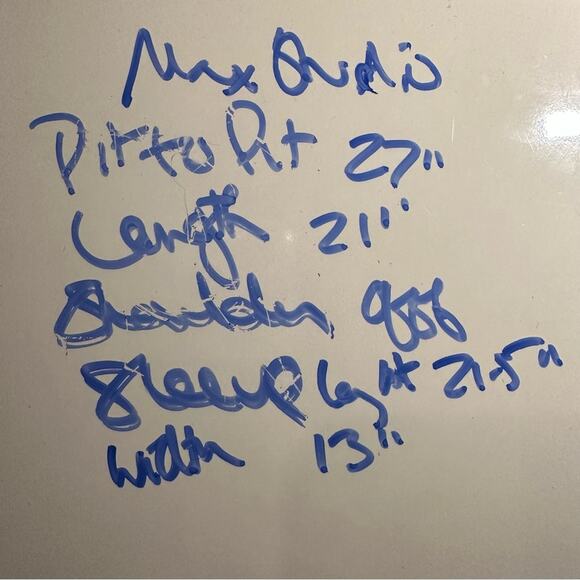 Max Studio
Pit to Pit 27"
Length 21"
Shoulder
Sleeve 21.5"
width 13"